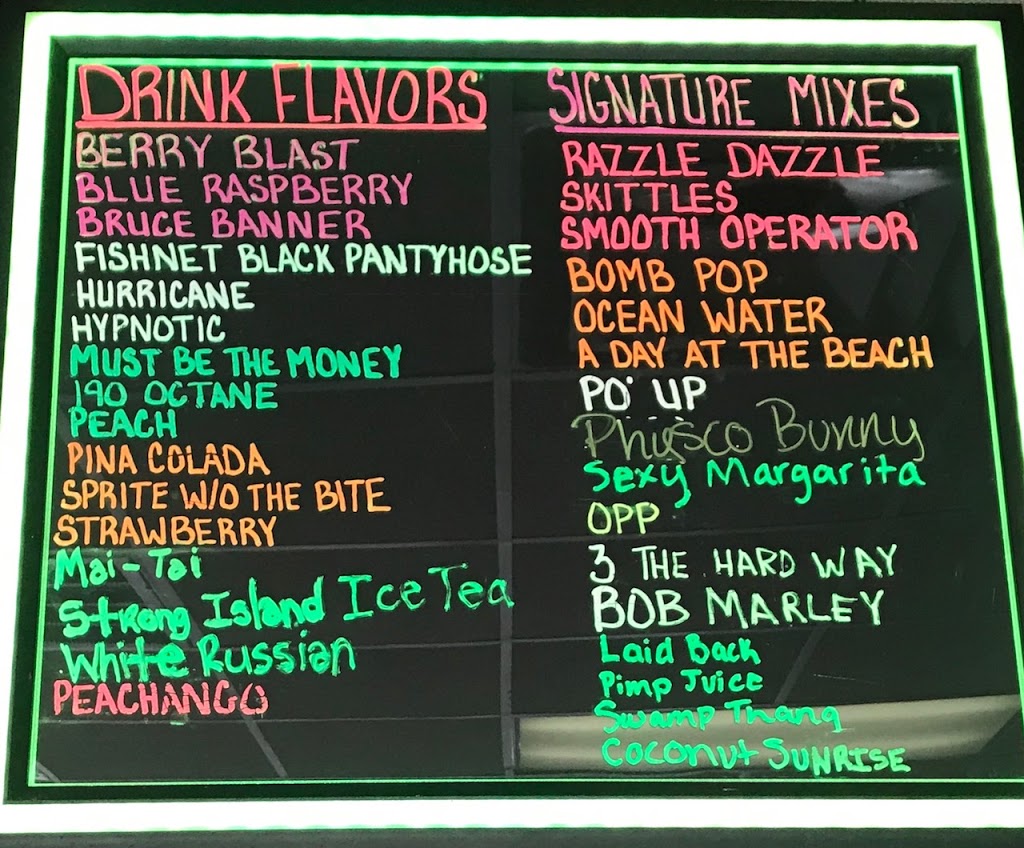 DRINK FLAVORS
BERRY BLAST
BLUE RASPBERRY
BRUCE BANNER
FISHNET BLACK PANTYHOSE
HURRICANE
HYPNOTIC
MUST BE THE MONEY
190 OCTANE
PEACH
PINA COLADA
SPRITE W/O THE BITE
STRAWBERRY
Mai-Tai
Strong Island Ice Tea
White Russian
PEACHANGO
SIGNATURE MIXES
RAZZLE DAZZLE
SKITTLES
SMOOTH OPERATOR
BOMB POP
OCEAN WATER
A DAY AT THE BEACH
PO' UP
Bunny
Sexy Margarita
OPP
3 THE HARD WAY
BOB MARLEY
Laid Back
Pimp Juice
Swamp Thang
Coconut SUNRISE